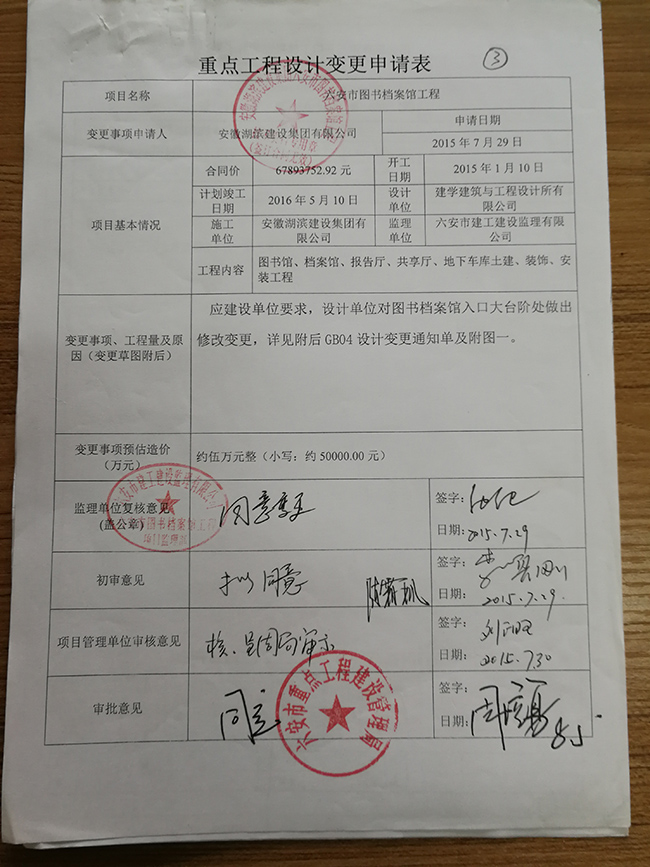 ③
重点工程设计变更申请表
项目名称
六安市图书档案馆工程
变更事项申请人
安徽湖滨建设集团有限公司
申请日期
2015 年 7 月 29 日
项目基本情况
合同价
67893752.92 元
开工
日期
2015 年 1 月 10 日
计划竣工
日期
2016 年 5 月 10 日
设计
单位
建学建筑与工程设计所有
限公司
施工
单位
安徽湖滨建设集团有
限公司
监理
单位
六安市建工建设监理有限
公司
工程内容
图书馆、档案馆、报告厅、共享厅、地下车库土建、装饰、安
装工程
变更事项、工程量及原
因（变更草图附后）
应建设单位要求，设计单位对图书档案馆入口大台阶处做出
修改变更，详见附后 GB04 设计变更通知单及附图一。
变更事项预估造价
（万元）
约伍万元整（小写：约 50000.00 元）
监理单位复核意见
(盖公章)
六安市建工建设监理有限公司
图书档案馆工程
项目监理部
同意变更
签字：
日期:
2015.7.29
初审意见
拟同意
签字：
日期：
2015.7.29.
项目管理单位审核意见
签字：
日期：
2015.7.30
审批意见
同意
六安市重点工程建设管理局
签字：
日期:
8.5